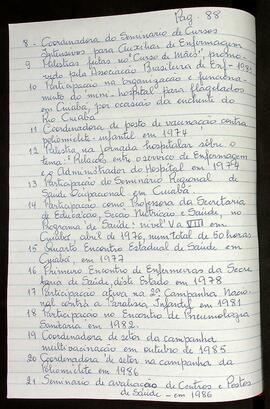 Pag. 88
8 - Coordenadora do Seminário de Cursos
Intensivos para Auxiliar de Enfermagem
9 Palestras feitas no "Curso de Mães", promo-
vido pela Associação Brasileira de Enf - 19
10 Participação na organização e funciona-
mento do mini-hospital para flagelados
em Cuiabá, por ocasião da enchente do
Rio Cuiabá
11 Coordenadora de posto de vacinação contra
poliomielite - infantil em 1974
12 Palestra na Jornada hospitalar sôbre o
tema: "Relações entre o serviço de Enfermagem
e o Administrador do Hospital em 1974
13 Participação do Seminário Regional de
Saúde Ocupacional em Cuiabá
14 Participação como Professora da Secretaria
de Educação, Secção Nutrição e Saúde, no
Programa de Saúde: nível V a VIII em
Cuiabá, abril de 1976, num total de 50 horas
15 Quarto Encontro Estadual de Saúde em
Cuiabá, em 1977
16 Primeiro Encontro de Enfermeiras da Secre
taria de Saúde, deste Estado em 1978
17 Participação ativa na 2ª Campanha Nacio-
nal contra a Paralisia Infantil em 1981
18 Participação no Encontro de Pneumologia
Sanitária em 1982.
19 Coordenadora de setor da campanha
multivacinação em outubro de 1985
20 Coordenadora de setor na campanha da
Poliomielite em 1986
21 Seminário de avaliação de Centros e Postos
de Saúde - em 1986